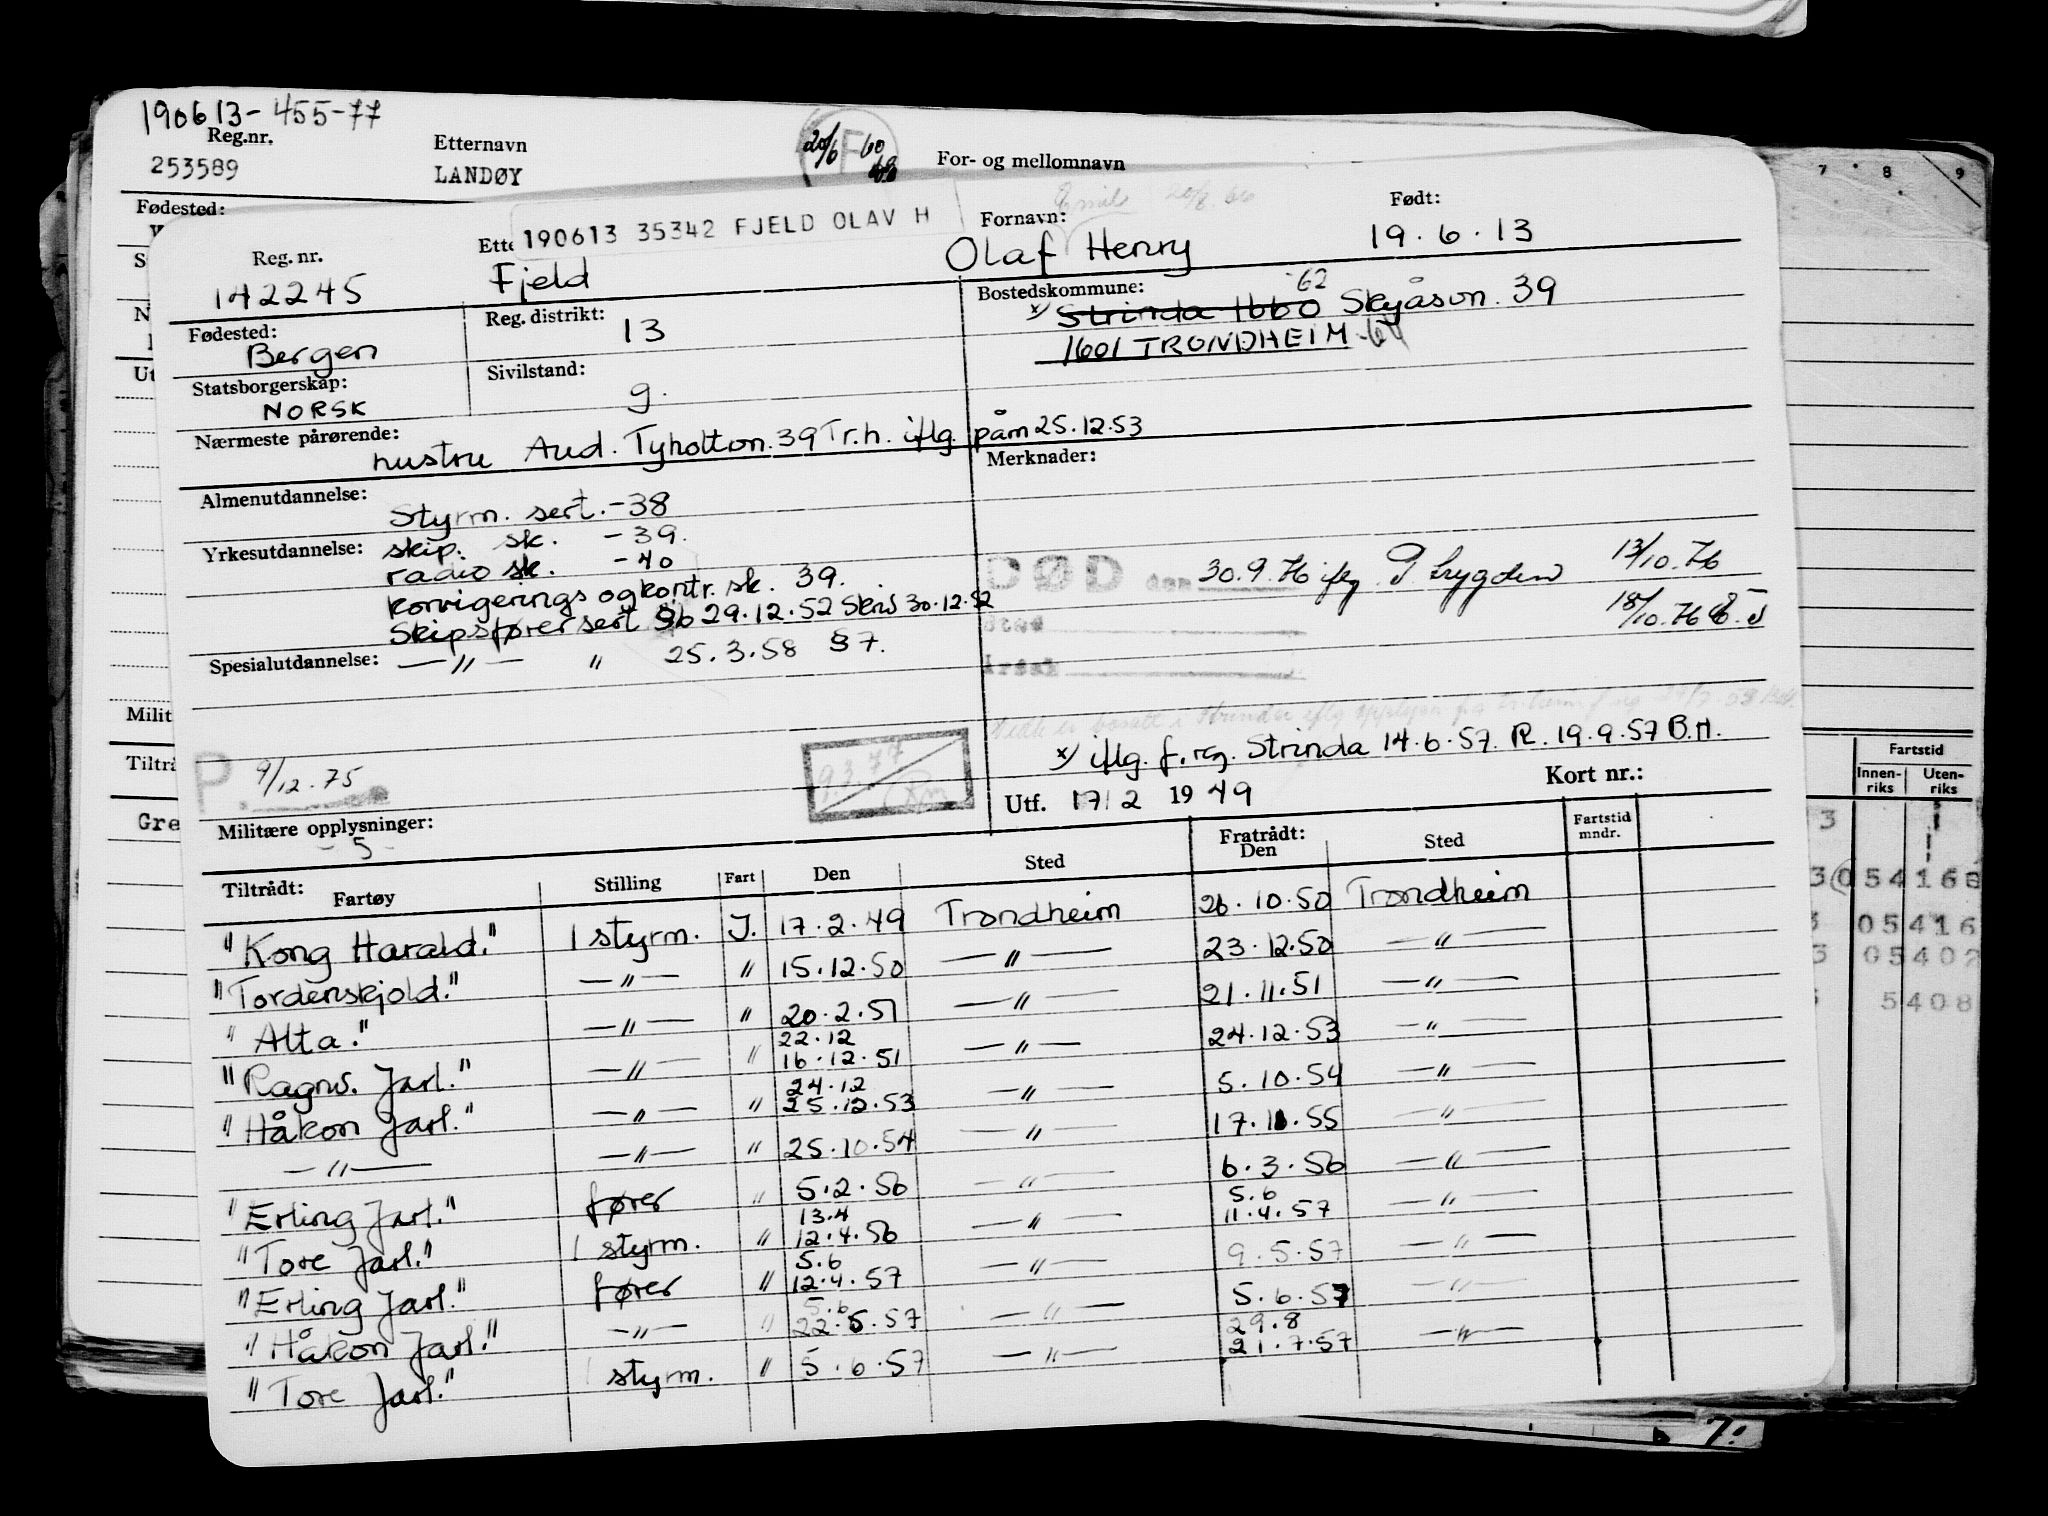 190613-455-77
Reg.nr. Etternavn For- og mellomnavn
253589 LANDØY
Fødested:
190613 35342 FJELD OLAV H
Reg. nr. Fornavn: Født:
142245 Fjeld Olaf Henry 19.6.13
Fødested: Bergen
Reg. distrikt: 13
Bostedskommune:
-62
x) Strinda 1660 Skyåsvn. 39
1601 TRONDHEIM
Statsborgerskap: NORSK
Sivilstand: g.
Nærmeste pårørende: hustru Aud. Tyholtvn. 39 Tr.h. iflg. påm 25.12.53
Merknader:
Almenutdannelse: Styrm. sert. -38
Yrkesutdannelse: skip. sk. -39.
radio sk. -40
korvigerings og kontr. sk. 39.
Skipsfører sert §6 29.12.52 Skrid 30.12.52
Spesialutdannelse: —〃— 〃 25.3.58 §7.
DØD den 30.9.76 iflg. Trygden 13/10.76
Sted 18/10.76
Årsak
x) iflg. f.reg. Strinda 14.6.57. R. 19.9.57 B.H.
P. 9/12.75
9.3.77
Utf. 17/2 1949 Kort nr.:
Militære opplysninger:
-5-
Tiltrådt: Fartøy Stilling Fart Den Sted Fratrådt: Den Sted Fartstid mndr.
"Kong Harald." 1 styrm. I. 17.2.49 Trondheim 26.10.50 Trondheim
"Tordenskjold." —〃— 〃 15.12.50 —〃— 23.12.50 —〃—
"Alta." —〃— 〃 20.2.51 —〃— 21.11.51 —〃—
22.12
"Ragnv. Jarl." —〃— 〃 16.12.51 —〃— 24.12.53 —〃—
24.12
"Håkon Jarl." —〃— 〃 25.12.53 —〃— 5.10.54 —〃—
—〃— —〃— 〃 25.10.54 —〃— 17.11.55 —〃—
"Erling Jarl." fører 〃 5.2.56 —〃— 6.3.56 —〃—
13.4 5.6
"Tore Jarl." 1 styrm. 〃 12.4.56 —〃— 11.4.57 —〃—
5.6
"Erling Jarl." fører 〃 12.4.57 —〃— 9.5.57 —〃—
5.6
"Håkon Jarl." —〃— 〃 22.5.57 —〃— 5.6.57 —〃—
29.8
"Tore Jarl." 1 styrm. 〃 5.6.57 —〃— 21.7.57 —〃—
Milit
Tiltrå
Gre
7 8 9
Fartstid
Innenriks Utenriks
05416
05402
5408
7.